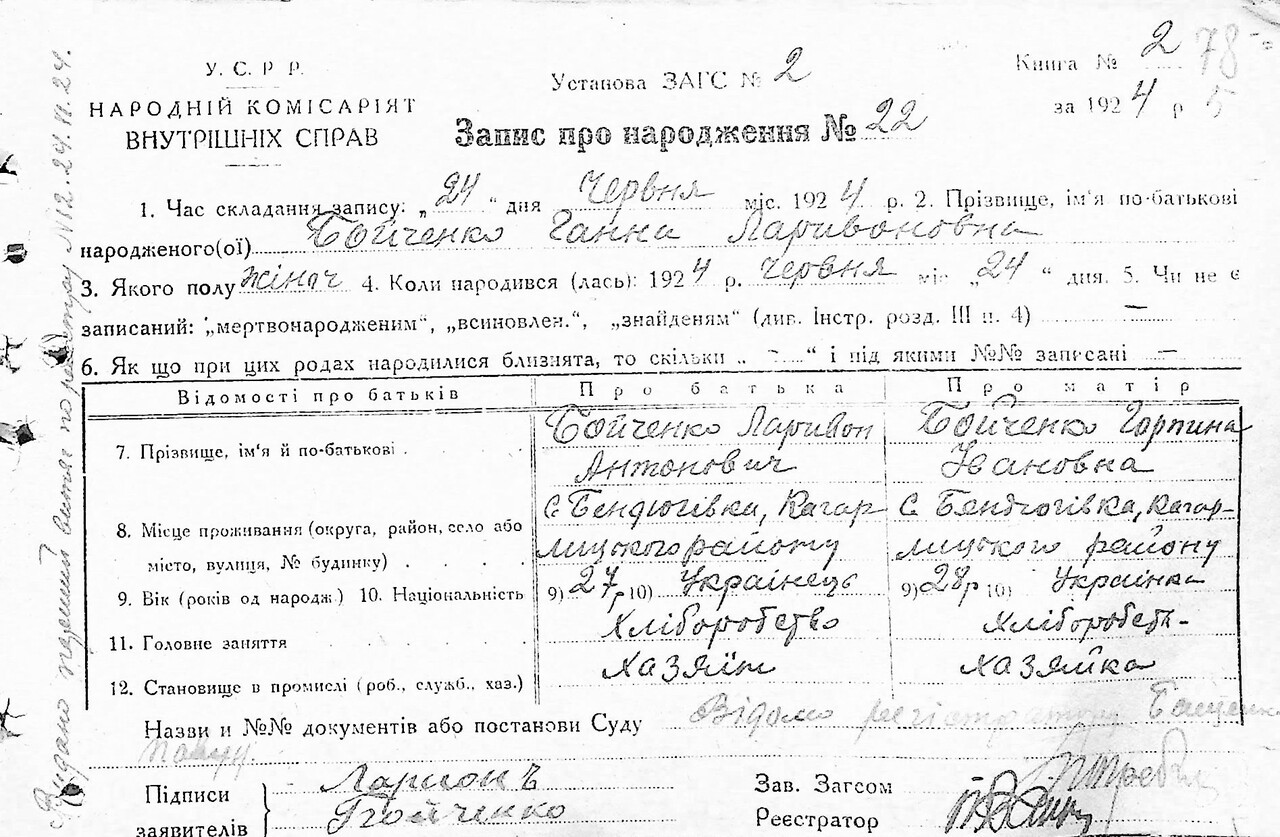 У. С. Р Р.
НАРОДНІЙ КОМІСАРІЯТ
ВНУТРІШНІХ СПРАВ
Установа ЗАГС № 2
Книга № 2 78
за 1924 р 5
Запис про народження № 22
1. Час складання запису: „24“ дня Червня міс. 1924 р. 2. Прізвище, ім'я по-батькові
народженого(ої) Бойченко Ганна Ларивоновна
3. Якого полу жіноч 4. Коли народився (лась): 1924 р. червня міс „24“ дня. 5. Чи не є
записаний: „мертвонародженим“, „всиновлен.“, „знайденям“ (див. Інстр. розд. III п. 4) —
6. Як що при цих родах народилися близнята, то скільки „ - “ і під якими №№ записані —
Відомості про батьків Про батька Про матір
7. Прізвище, ім'я й по-батькові . Бойченко Ларивон Бойченко Горпина
Антонович Івановна
8. Місце проживання (округа, район, село або С. Бендюгівка, Кагар- С. Бендюгівка, Кагар-
місто, вулиця, № будинку) . . . . лицького району лицького району
9. Вік (років од народж.) 10. Національність 9) 27 р 10) Українець 9) 28 р 10) Українка
11. Головне заняття . . . . Хліборобство Хліборобств-
12. Становище в промислі (роб., служб., хаз.) хазяїн хазяйка
Назви и №№ документів або постанови Суду Відомо регістратору
Підписи
заявителів
Ларионъ
Бойченко
Зав. Загсом
Реєстратор
Видано перший витяг по реєстру № 12. 24.VI.24.